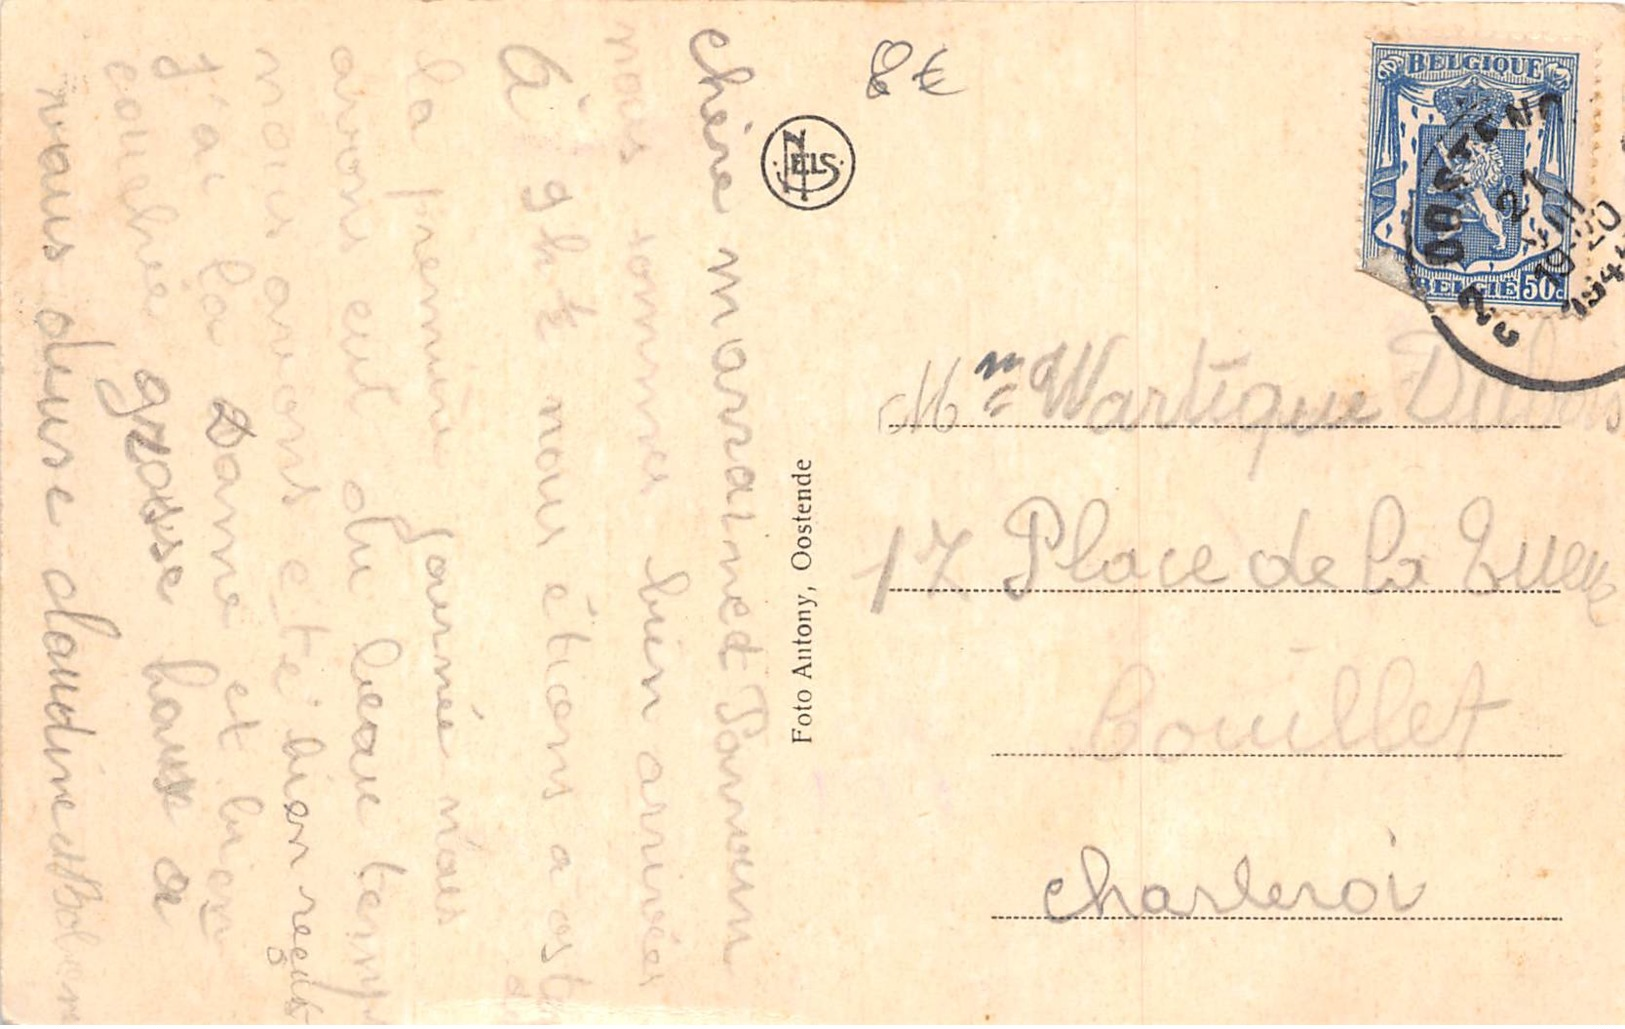 chère marraine et Parrain
nous sommes bien arrivées
A 9 h ½ nous étions à ost
de
la première journée nous
avons eut du beau temps
nous avons eté bien reçus
j'ai la Dame et bien
couchée grosse house a
vous deuse claudine et
8 €
NELS
Foto Antony, Oostende
BELGIQUE
BELGIE 50c
OOSTENDE
21
VIII
19-20
194
2
Mme Wartique Dubois
17 Place de la Queue
Couillet
charleroi